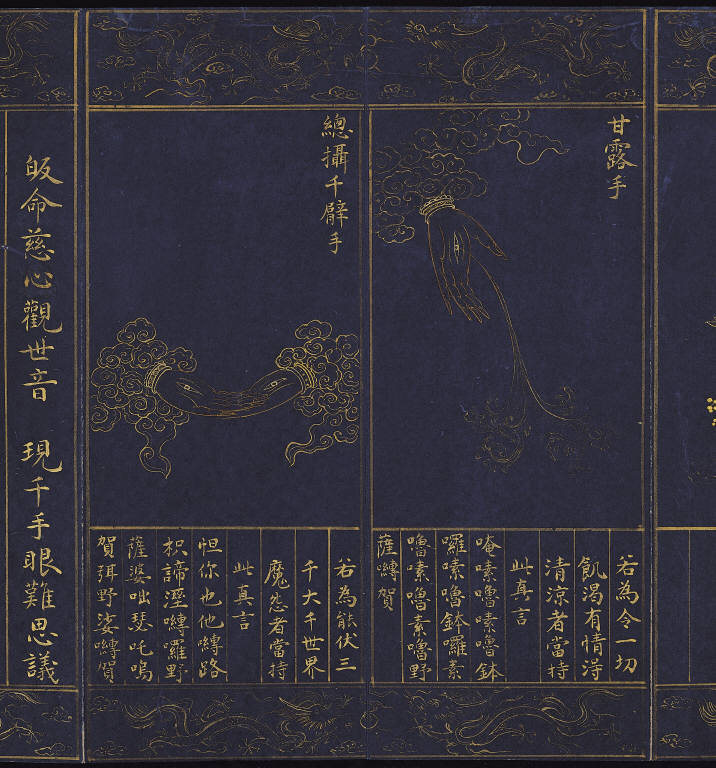 甘露手
若為令一切
飢渴有情淂
清涼者當持
此真言
唵嗉嚕嗉嚕鉢
囉嗉嚕鉢囉素
嚕嗉嚕素嚕野
薩嚩賀
總攝千臂手
若為能伏三
千大千世界
魔怨者當持
此真言
怛你也他嚩路
枳諦溼嚩囉野
薩婆咄瑟吒嗚
賀弭野娑嚩賀
皈命慈心觀世音　現千手眼難思議